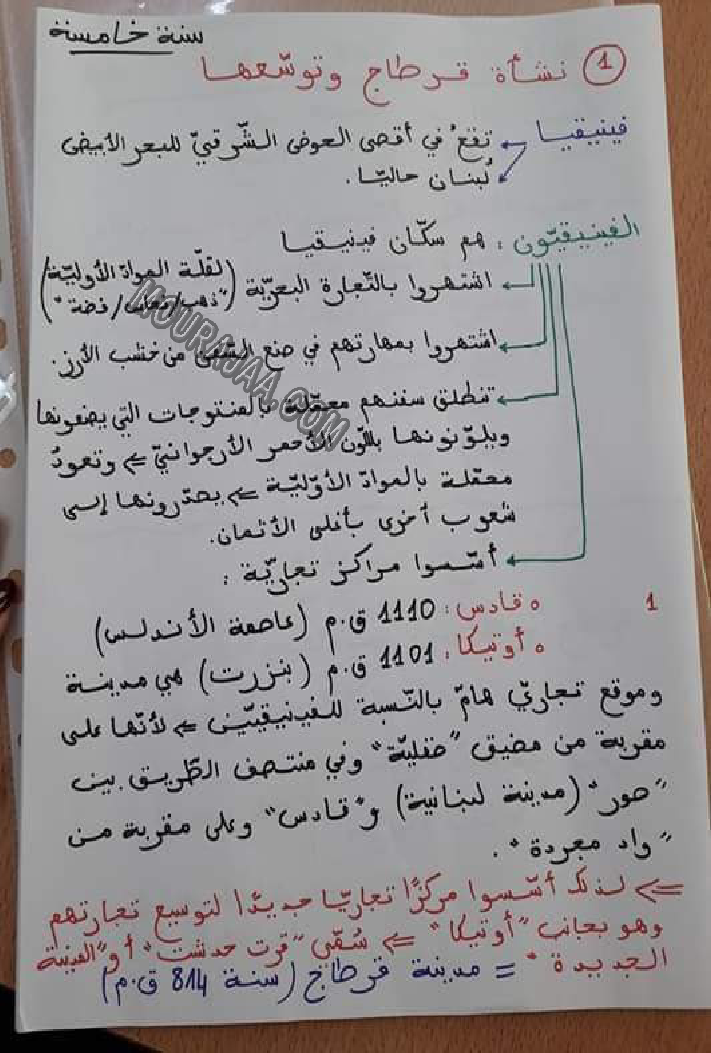 سنة خامسة
1 نشأة قرطاج وتوسّعها
فينيقيا
تقعُ في أقصى الحوض الشّرقيّ للبحر الأبيض
لُبنان حاليّا.
الفينيقيّون : هم سكّان فينيقيا
اشتهروا بالتّجارة البحريّة (لقلّة الموادّ الأوليّة/
"ذهب/نحاس/فضة")
اشتهروا بمهارتهم في صنع السّفن من خشب الأرز.
تنطلق سفنهم محمّلة بالمنتوجات التي يصنعونها
ويلوّنونها باللّون الأحمر الأرجوانيّ => وتعودُ
محمّلة بالموادّ الأوّليّة => يصدّرونها إلى
شعوب أخرى بأغلى الأثمان.
أسّسوا مراكز تجاريّة :
1
قادس: 1110 ق.م (عاصمة الأندلس)
أوتيكا: 1101 ق.م (بنزرت) هي مدينة
وموقع تجاريّ هامّ بالنّسبة للفينيقيّين => لأنّها على
مقربة من مضيق "صقليّة" وفي منتصف الطّريق بين
"صور" (مدينة لبنانية) و"قادس" وعلى مقربة من
"واد مجردة".
=> لذلك أسّسوا مركزًا تجاريّا جديدًا لتوسيع تجارتهم
وهو بجانب "أوتيكا" => سُمّي "قرت حدشت" أو "المدينة
الجديدة" = مدينة قرطاج (سنة 814 ق.م)
MOURAJAA.COM